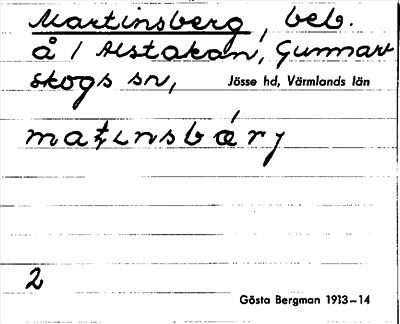 Martinsberg, beb.
å 1 Älstakan, Gunnar
skogs sn, Jösse hd, Värmlands län
maʈınsbǽrj
2
Gösta Bergman 1913–14